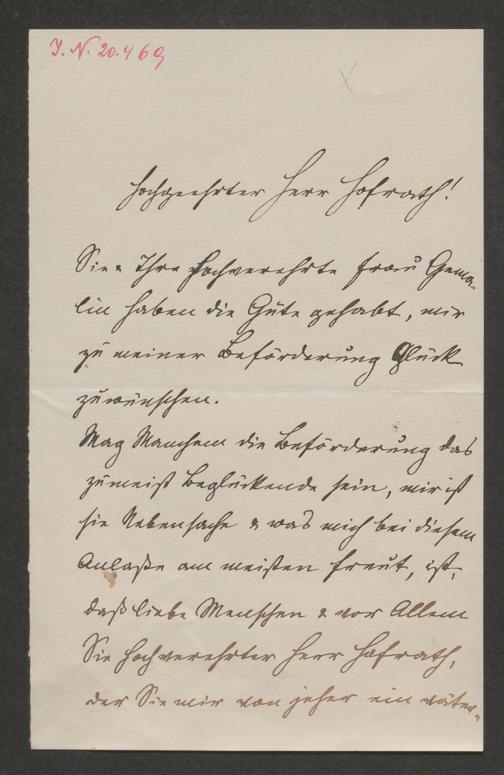 I. N. 20.469
Hochgeehrter Herr Hofrath!
Sie & Ihre hochverehrte Frau Gema-
lin haben die Güte gehabt, mir
zu meiner Beförderung Glück
zuwünschen.
Mag Manchem die Beförderung das
zumeist Beglückende sein, mir ist
sie Nebensache & was mich bei diesem
Anlaße am meisten freut, ist,
daß liebe Menschen & vor Allem
Sie hochverehrter Herr Hofrath,
der Sie mir von jeher ein väter-